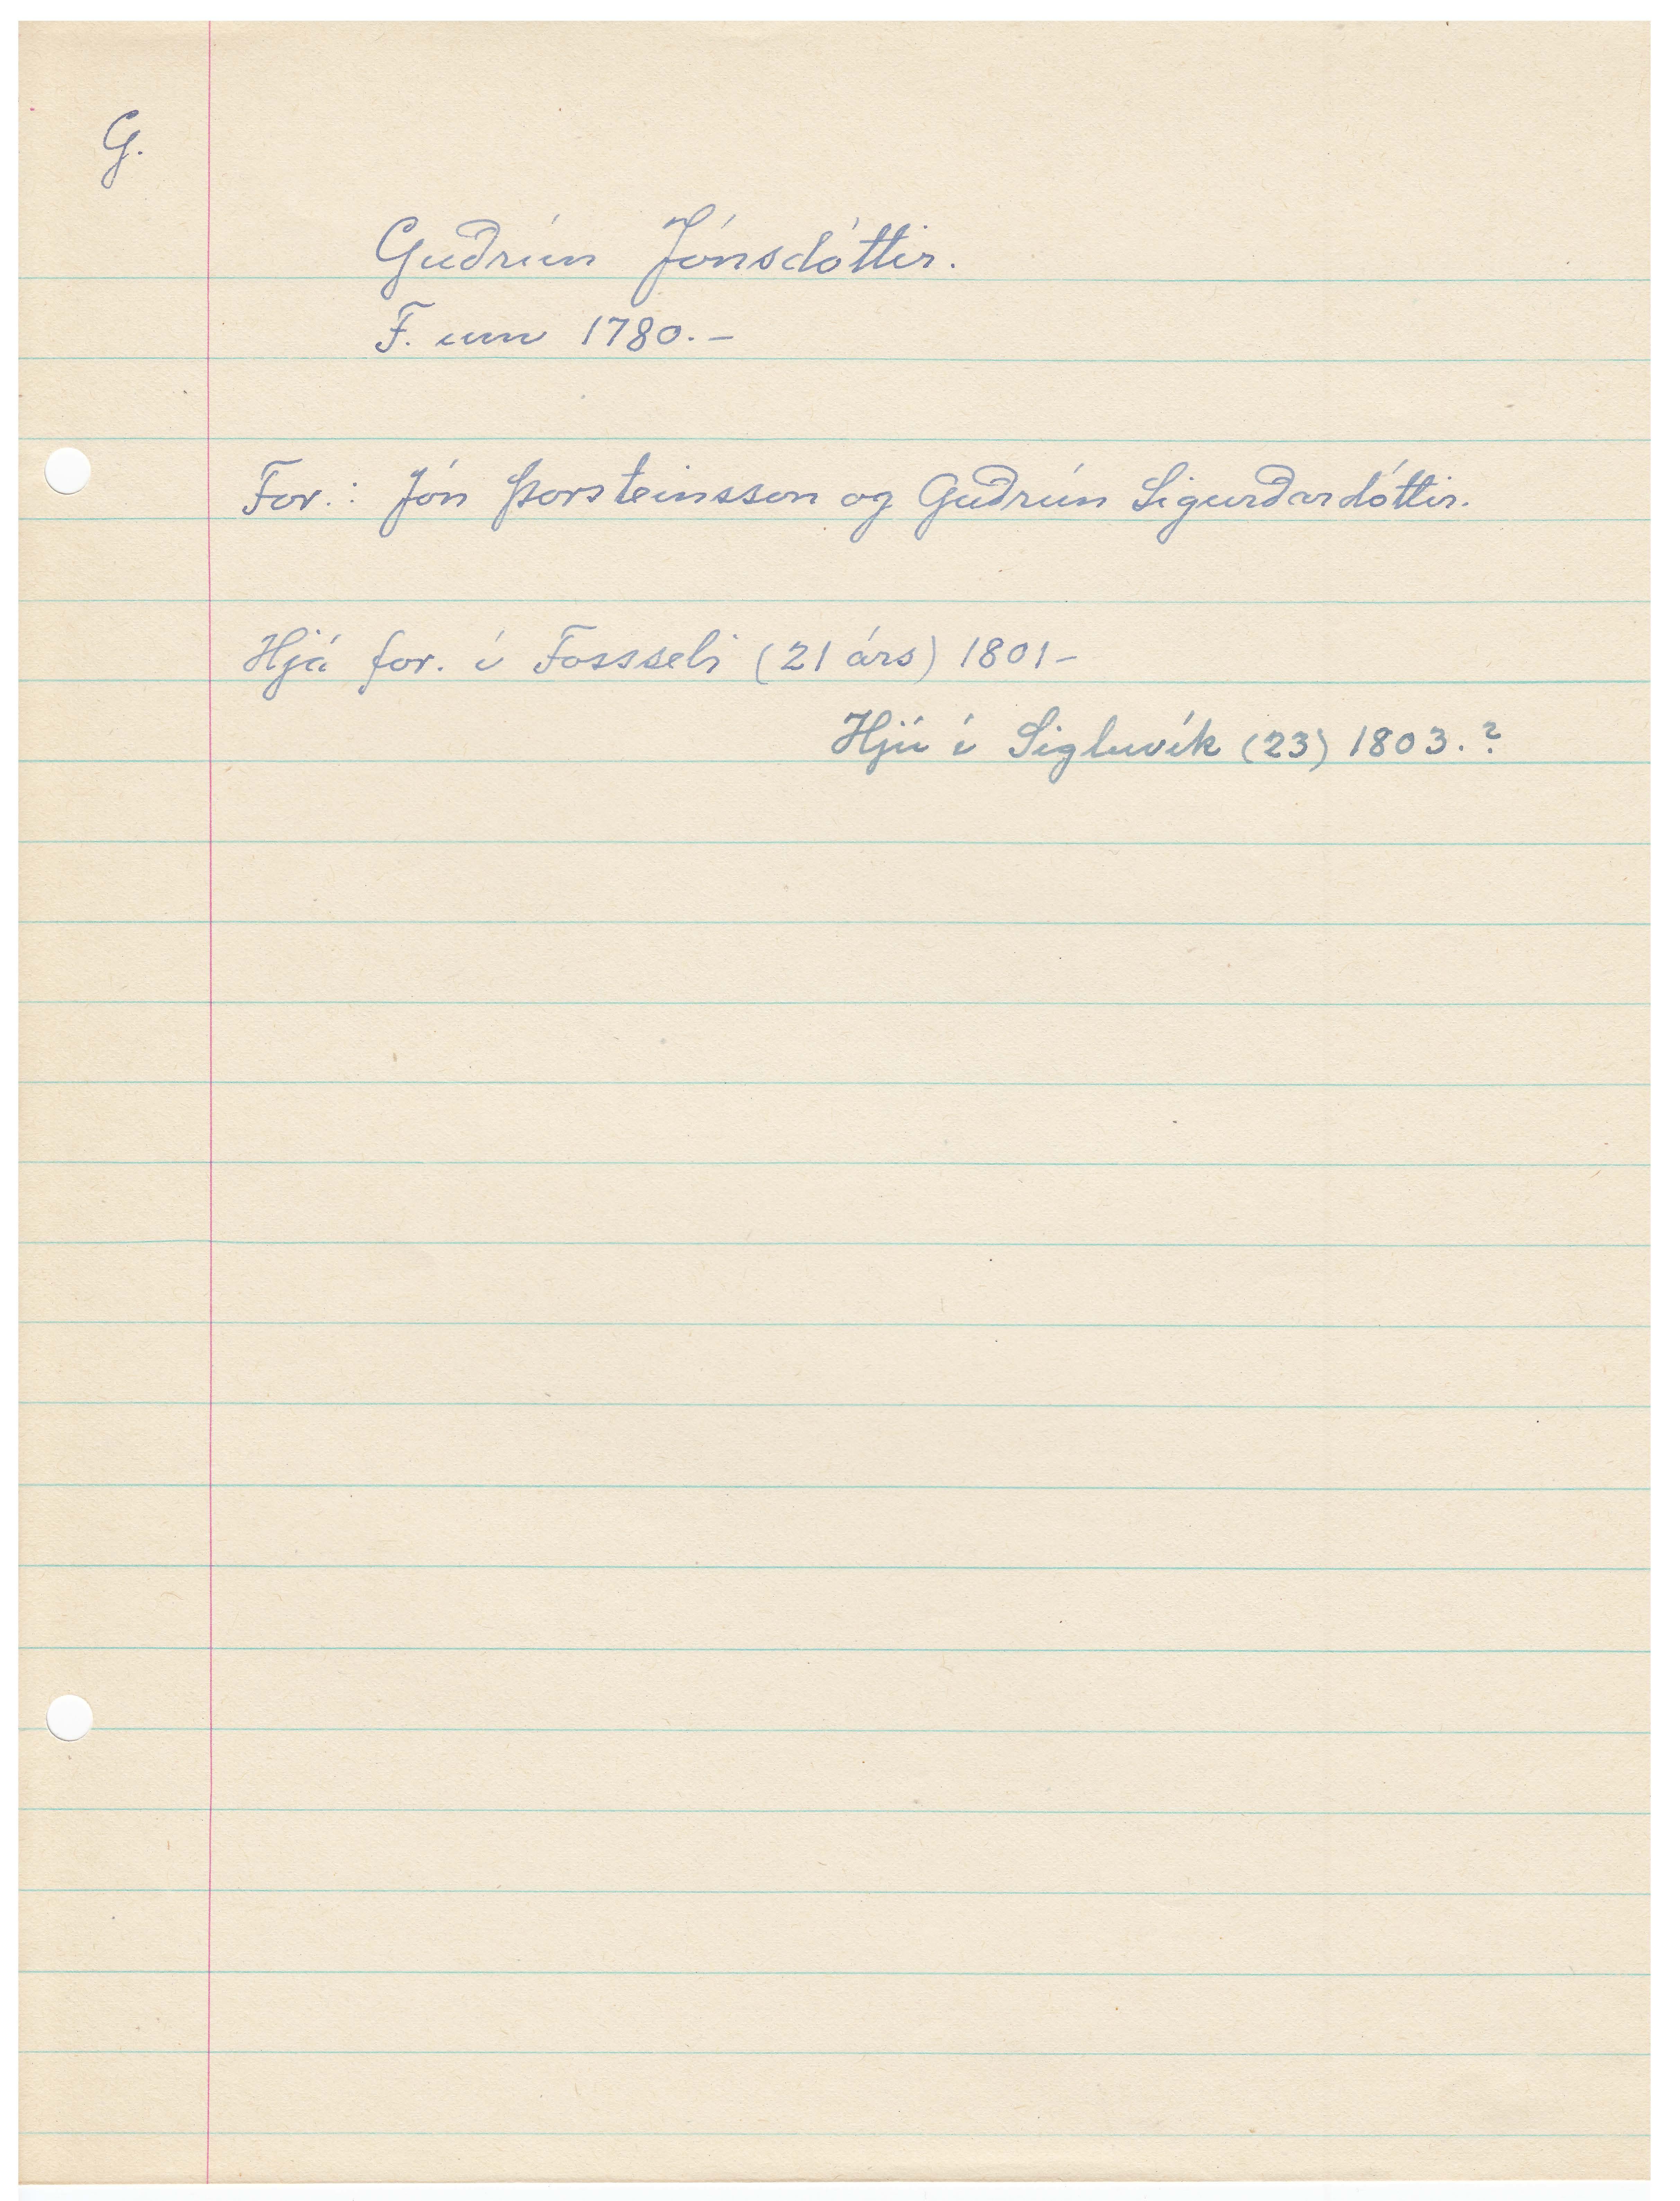 G.
Guðrún Jónsdóttir.
F. um 1780. -
For.: Jón Þorsteinsson og Guðrún Sigurðardóttir.
Hjá for. í Fossseli (21 árs) 1801 -
Hjú í Sigluvík (23) 1803. ?